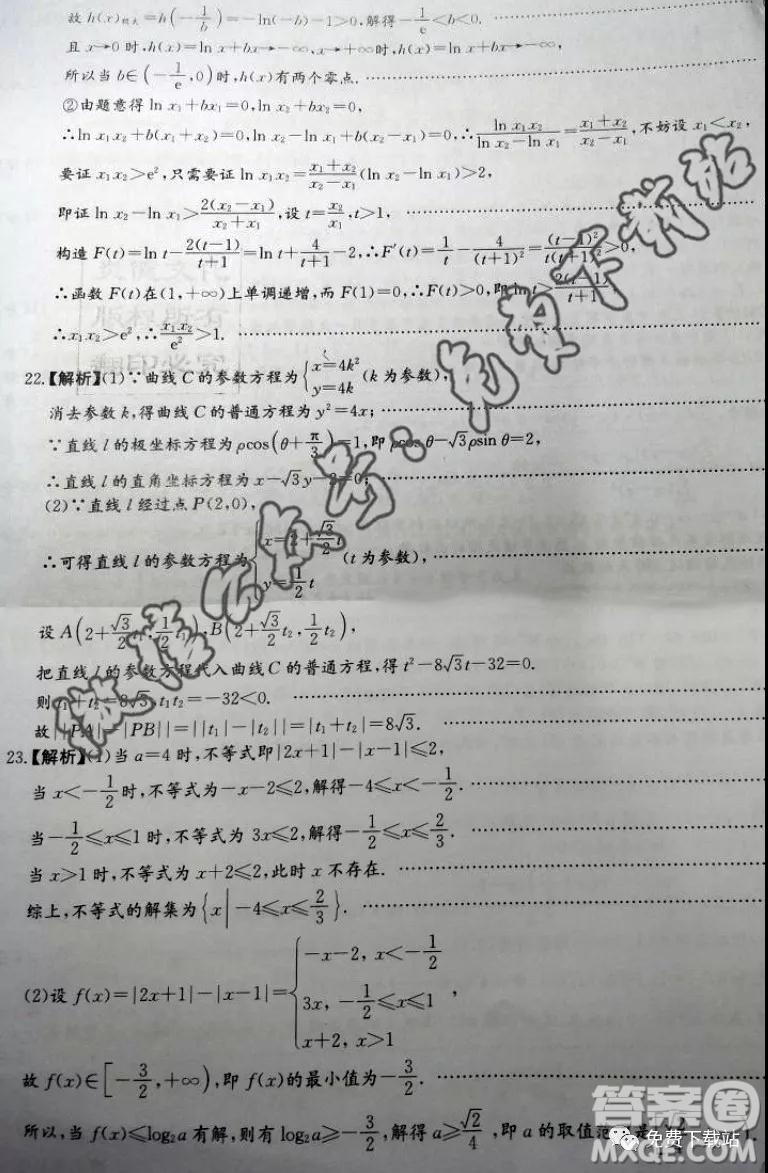 故 h(x)极大=h(-1/b)=-ln(-b)-1>0,解得-1/e<b<0.
且 x→0 时,h(x)=ln x+bx→-∞,x→+∞时,h(x)=ln x+bx→-∞,
所以当 b∈(-1/e,0)时,h(x)有两个零点.
②由题意得 ln x₁+bx₁=0,ln x₂+bx₂=0,
∴ln x₁x₂+b(x₁+x₂)=0,ln x₂-ln x₁+b(x₂-x₁)=0,∴(ln x₁x₂)/(ln x₂-ln x₁)=(x₁+x₂)/(x₂-x₁),不妨设 x₁<x₂,
要证 x₁x₂>e²,只需要证 ln x₁x₂=(x₁+x₂)/(x₂-x₁)(ln x₂-ln x₁)>2,
即证 ln x₂-ln x₁>2(x₂-x₁)/(x₂+x₁),设 t=x₂/x₁,t>1,
构造 F(t)=ln t-2(t-1)/(t+1)=ln t+4/(t+1)-2,∴F′(t)=1/t-4/(t+1)²=(t-1)²/t(t+1)²>0,
∴函数 F(t)在(1,+∞)上单调递增,而 F(1)=0,∴F(t)>0,即 ln t>2(t-1)/(t+1),
∴x₁x₂>e²,∴x₁x₂/e²>1.
22.【解析】(1)∵曲线 C 的参数方程为{x=4k² y=4k (k 为参数),
消去参数 k,得曲线 C 的普通方程为 y²=4x;
∵直线 l 的极坐标方程为 ρcos(θ+π/3)=1,即 ρcos θ-√3ρsin θ=2,
∴直线 l 的直角坐标方程为 x-√3y-2=0;
(2)∵直线 l 经过点 P(2,0),
∴可得直线 l 的参数方程为{x=2+√3/2 t y=1/2 t (t 为参数),
设 A(2+√3/2 t₁,1/2 t₁),B(2+√3/2 t₂,1/2 t₂),
把直线 l 的参数方程代入曲线 C 的普通方程,得 t²-8√3t-32=0.
则 t₁+t₂=8√3,t₁t₂=-32<0.
故||PA|-|PB||=||t₁|-|t₂||=|t₁+t₂|=8√3.
23.【解析】(1)当 a=4 时,不等式即|2x+1|-|x-1|≤2,
当 x<-1/2时,不等式为-x-2≤2,解得-4≤x<-1/2.
当-1/2≤x≤1 时,不等式为 3x≤2,解得-1/2≤x≤2/3.
当 x>1 时,不等式为 x+2≤2,此时 x 不存在.
综上,不等式的解集为{x|-4≤x≤2/3}.
(2)设 f(x)=|2x+1|-|x-1|={-x-2, x<-1/2 3x, -1/2≤x≤1 x+2, x>1,
故 f(x)∈[-3/2,+∞),即 f(x)的最小值为-3/2.
所以,当 f(x)≤log₂a 有解,则有 log₂a≥-3/2,解得 a≥√2/4,即 a 的取值范围是
答案圈
免费下载站